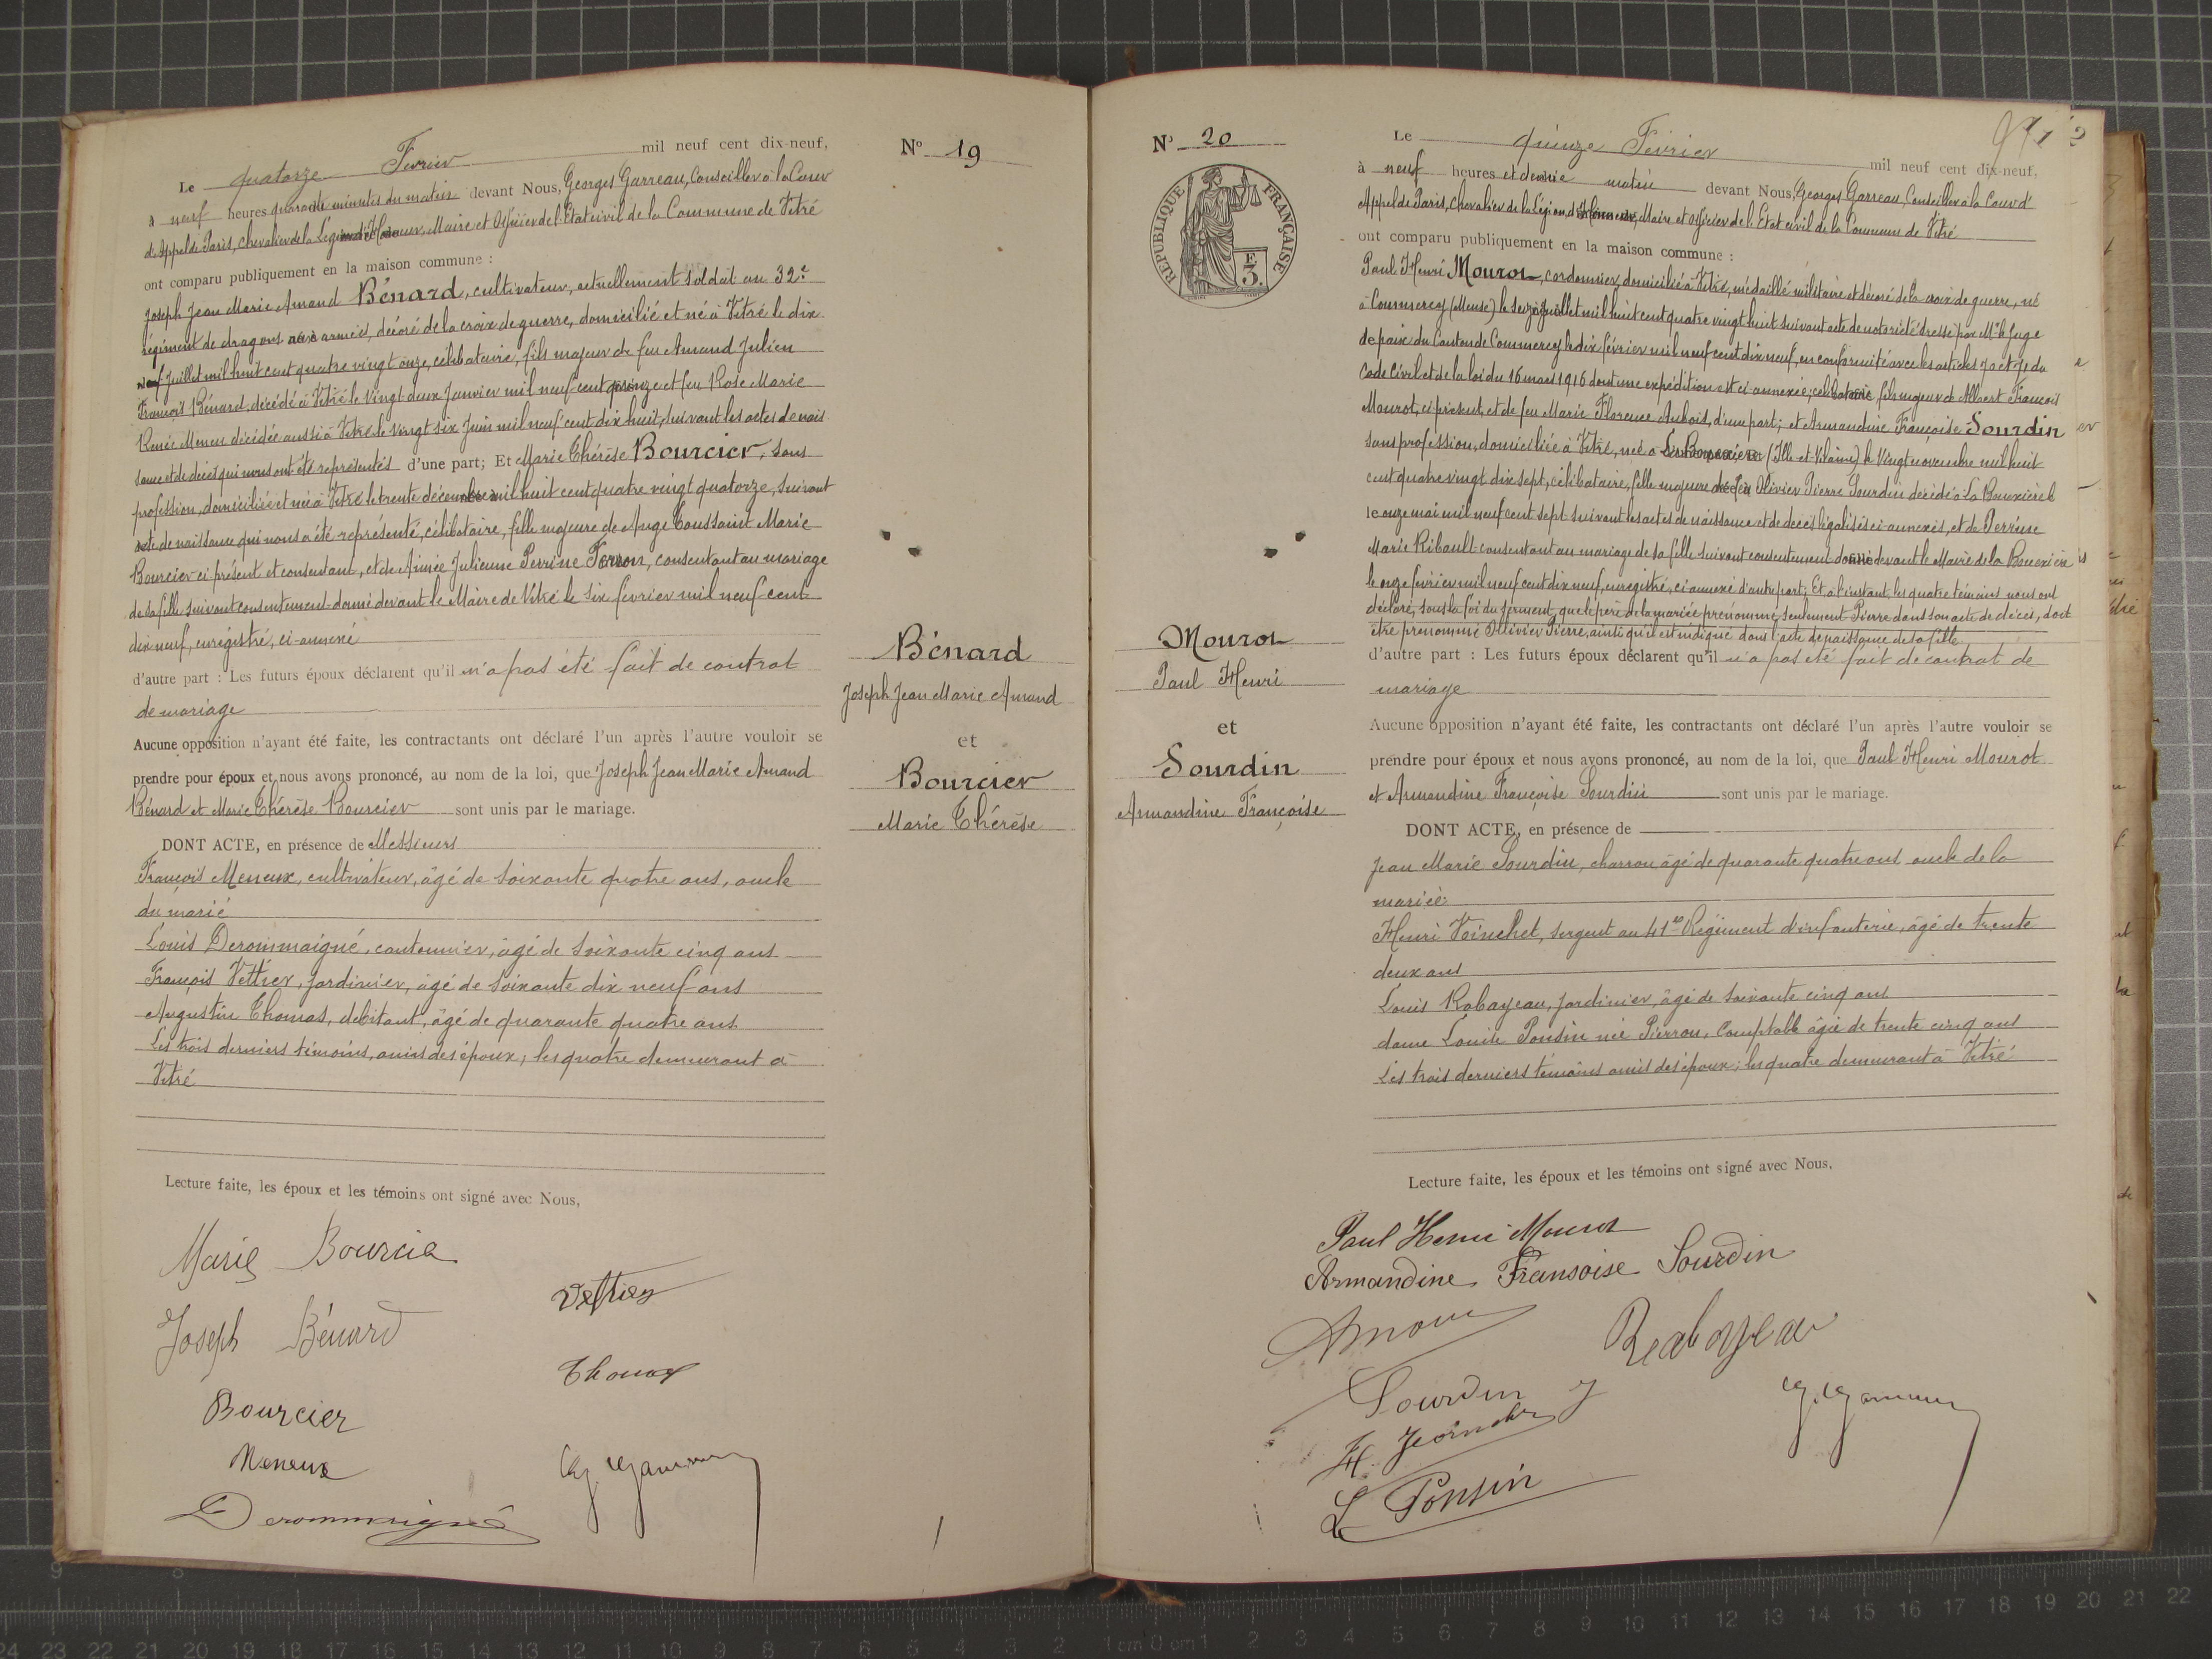 Le quatorze Fevrier mil neuf cent dix-neuf,
à neuf heures quarante minutes du matin devant Nous, Georges Garreau, Conseiller à la Cour
d'Appel de Paris, Chevalier de la Légion d'Honneur, Maire et Officier de l'Etat civil de la Commune de Vitré
ont comparu publiquement en la maison commune :
Joseph Jean Marie Amand Bénard, cultivateur, actuellement soldat au 32e
régiment de dragons aux armées, décoré de la croix de guerre, domicilié et né à Vitré le dix
neuf Juillet mil huit cent quatre vingt onze, célibataire, fils majeur de feu Amand Julien
François Bénard décédé à Vitré le vingt deux Janvier mil neuf cent quinze et feu Rose Marie
Renée Meneu décédée aussi à Vitré le vingt six Juin mil neuf cent dix huit, suivant les actes de nais
sance et de décès qui nous ont été représentés d'une part; Et Marie Thérèse Bourcier, sans
profession, domiciliée et née à Vitré le trente décembre mil huit cent quatre vingt quatorze, suivant
acte de naissance qui nous a été représenté, célibataire, fille majeure de Ange Toussaint Marie
Bourcier ci présent et consentant, et de Aimée Julienne Perrine Ferron, consentant au mariage
de sa fille suivant consentement donné devant le Maire de Vitré le six février mil neuf cent
dix neuf, enrégistré, ci-annexé
d'autre part : Les futurs époux déclarent qu'il n'a pas été fait de contrat
de mariage
Aucune opposition n'ayant été faite, les contractants ont déclaré l'un après l'autre vouloir se
prendre pour époux et nous avons prononcé, au nom de la loi, que Joseph Jean Marie Amand
Bénard et Marie Thérèse Bourcier sont unis par le mariage.
DONT ACTE, en présence de Messieurs
François Meneux, cultivateur, âgé de soixante quatre ans, oncle
du marié
Louis Derommaigné, cantonnier, âgé de soixante cinq ans
François Vettier, jardinier, âgé de soixante dix neuf ans
Augustin Thomas, débitant, âgé de quarante quatre ans
Les trois derniers témoins, amis des époux; les quatre demeurant à
Vitré
Lecture faite, les époux et les témoins ont signé avec Nous,
Marie Bourcie
Vettier
Joseph Bénard
Thomas
Bourcier
Meneux
Derommaigné
N° 19
Bénard
Joseph Jean Marie Amand
et
Bourcier
Marie Thérèse
N° 20
REPUBLIQUE FRANÇAISE
F. 3.
Mourot
Paul Henri
et
Sourdin
Armandine Françoise
Le quinze Février mil neuf cent dix-neuf,
à neuf heures et demie matin devant Nous, Georges Garreau, Conseiller à la Cour d'
Appel de Paris, Chevalier de la Légion d'Honneur, Maire et Officier de l'Etat civil de la Commune de Vitré
ont comparu publiquement en la maison commune :
Paul Henri Mourot, cordonnier, domicilié à Vitré, médaillé militaire et décoré de la croix de guerre, né
à Commercy (Meuse) le seize juillet mil huit cent quatre vingt huit suivant acte de notoriété dressé par Mr le Juge
de paix du Canton de Commercy le dix février mil neuf cent dix neuf, en conformité avec les articles 70 et 71 du
Code Civil et de la loi du 16 mars 1916 dont une expédition est ci annexée; célibataire, fils majeur de Albert François
Mourot, ci présent, et de feu Marie Florence Aubois, d'une part; et Armandine Françoise Sourdin
sans profession, domiciliée à Vitré, née à La Bouëxière (Ille et Vilaine) le vingt novembre mil huit
cent quatre vingt dix sept, célibataire, fille majeure de feu Olivier Pierre Sourdin décédé à La Bouexière le
le onze mai mil neuf cent sept suivant les actes de naissance et de décès légalisés ci annexés, et de Perrine
Marie Ribault consentant au mariage de sa fille suivant consentement donné devant le Maire de la Bouexière
le onze février mil neuf cent dix neuf, enregistré, ci annexé d'autre part; Et à l'instant, les quatre témoins nous ont
déclaré, sous la foi du serment, que le père de la mariée prénommé, seulement Pierre dans son acte de décès, doit
être prénommé Ollivier Pierre, ainsi qu'il est indiqué dans l'acte de naissance de sa fille
d'autre part : Les futurs époux déclarent qu'il n'a pas été fait de contrat de
mariage
Aucune opposition n'ayant été faite, les contractants ont déclaré l'un après l'autre vouloir se
prendre pour époux et nous avons prononcé, au nom de la loi, que Paul Henri Mourot
et Armandine Françoise Sourdin sont unis par le mariage.
DONT ACTE, en présence de
Jean Marie Sourdin, charron âgé de quarante quatre ans oncle de la
mariée
Henri Voinchet, sergent au 41e Régiment d'infanterie, âgé de trente
deux ans
Louis Rabayeau, jardinier, âgé de soixante cinq ans
dame Louise Ponsin née Pierron, Comptable âgée de trente cinq ans
Les trois derniers témoins amis des époux; les quatre demeurant à Vitré
Lecture faite, les époux et les témoins ont signé avec Nous,
Paul Henri Mourot
Armandine Fransoise Sourdin
Rabayeau
Sourdin J
L Ponsin
9 8 24 23 22 21 20 19 18 17 16 15 14 13 12 11 10 9 8 7 6 5 4 3 2 1 cm 0 cm 1 2 3 4 5 6 7 8 9 10 11 12 13 14 15 16 17 18 19 20 21 22